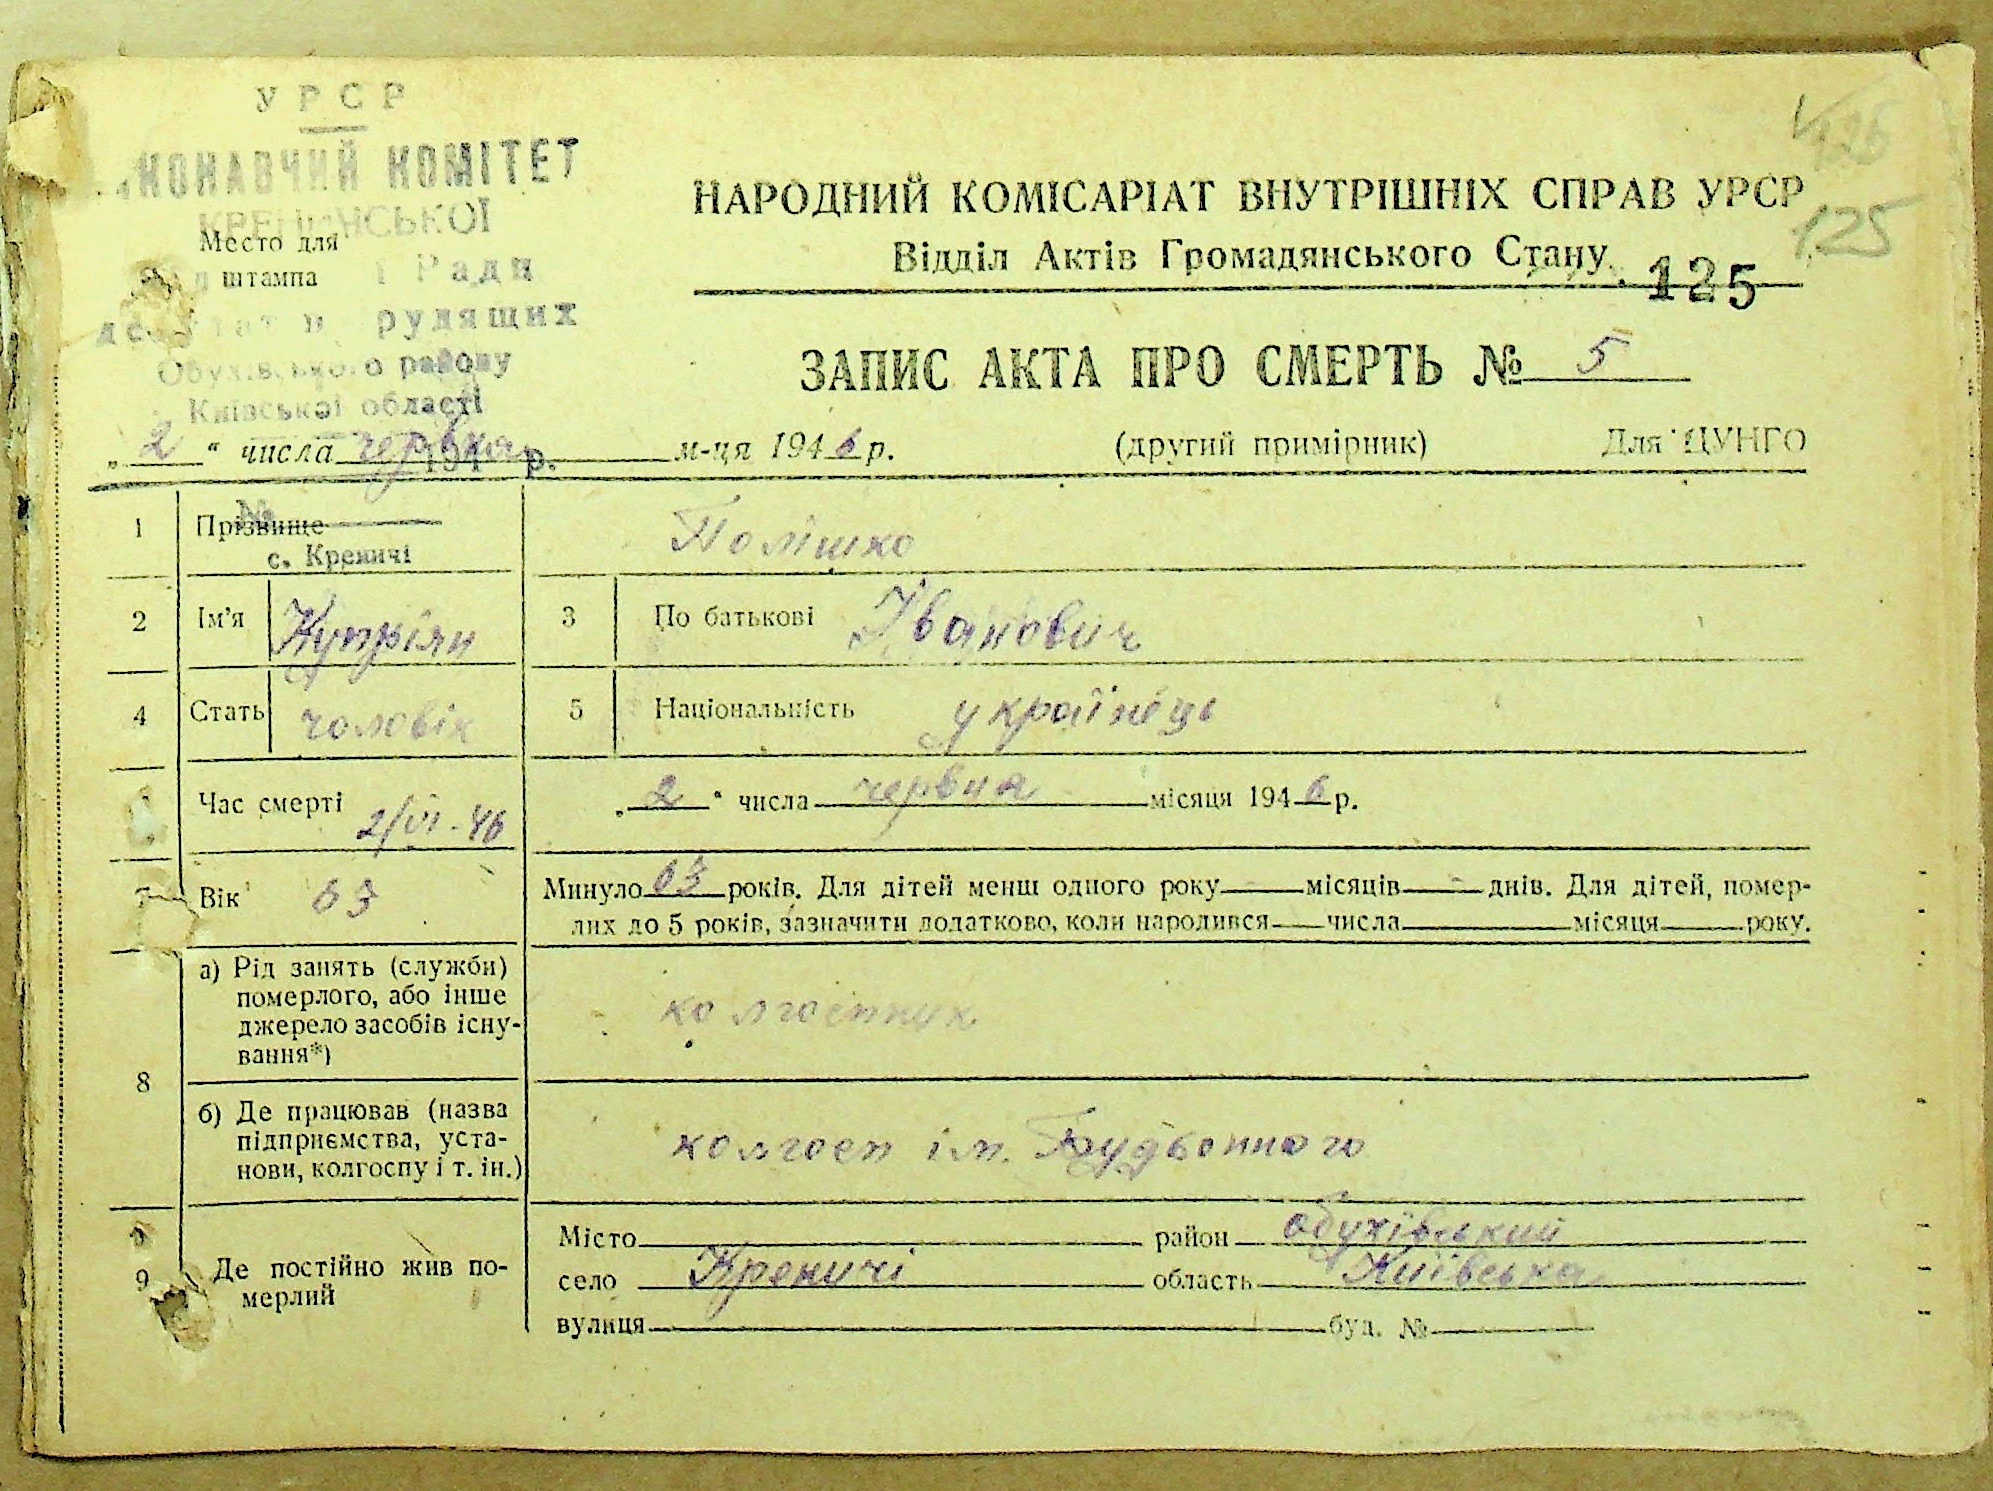 УРСР
КОМІТЕТ
Место для
штампа
Ради
Обухівського району
Київської області
126
125
НАРОДНИЙ КОМІСАРІАТ ВНУТРІШНІХ СПРАВ УРСР
Відділ Актів Громадянського Стану
125
ЗАПИС АКТА ПРО СМЕРТЬ № 5
„2“ числа червня м-ця 1946 р. (другий примірник) Для ЦУНГО
194 р.
№
1 Прізвище Полішко
с. Креничі
2 Ім'я Купріян 3 По батькові Іванович
4 Стать чоловік 5 Національність українець
Час смерті 2/VI-46 „2“ числа червня місяця 1946 р.
7 Вік 63 Минуло 63 років. Для дітей менш одного року — місяців — днів. Для дітей, помер-
лих до 5 років, зазначити додатково, коли народився числа місяця року.
8 а) Рід занять (служби)
померлого, або інше
джерело засобів існу-
вання*)
колгоспник
б) Де працював (назва
підприємства, уста-
нови, колгоспу і т. ін.)
колгосп ім. Будьонного
9 Де постійно жив по-
мерлий
Місто район обухівський
село Креничі область Київська
вулиця буд. №